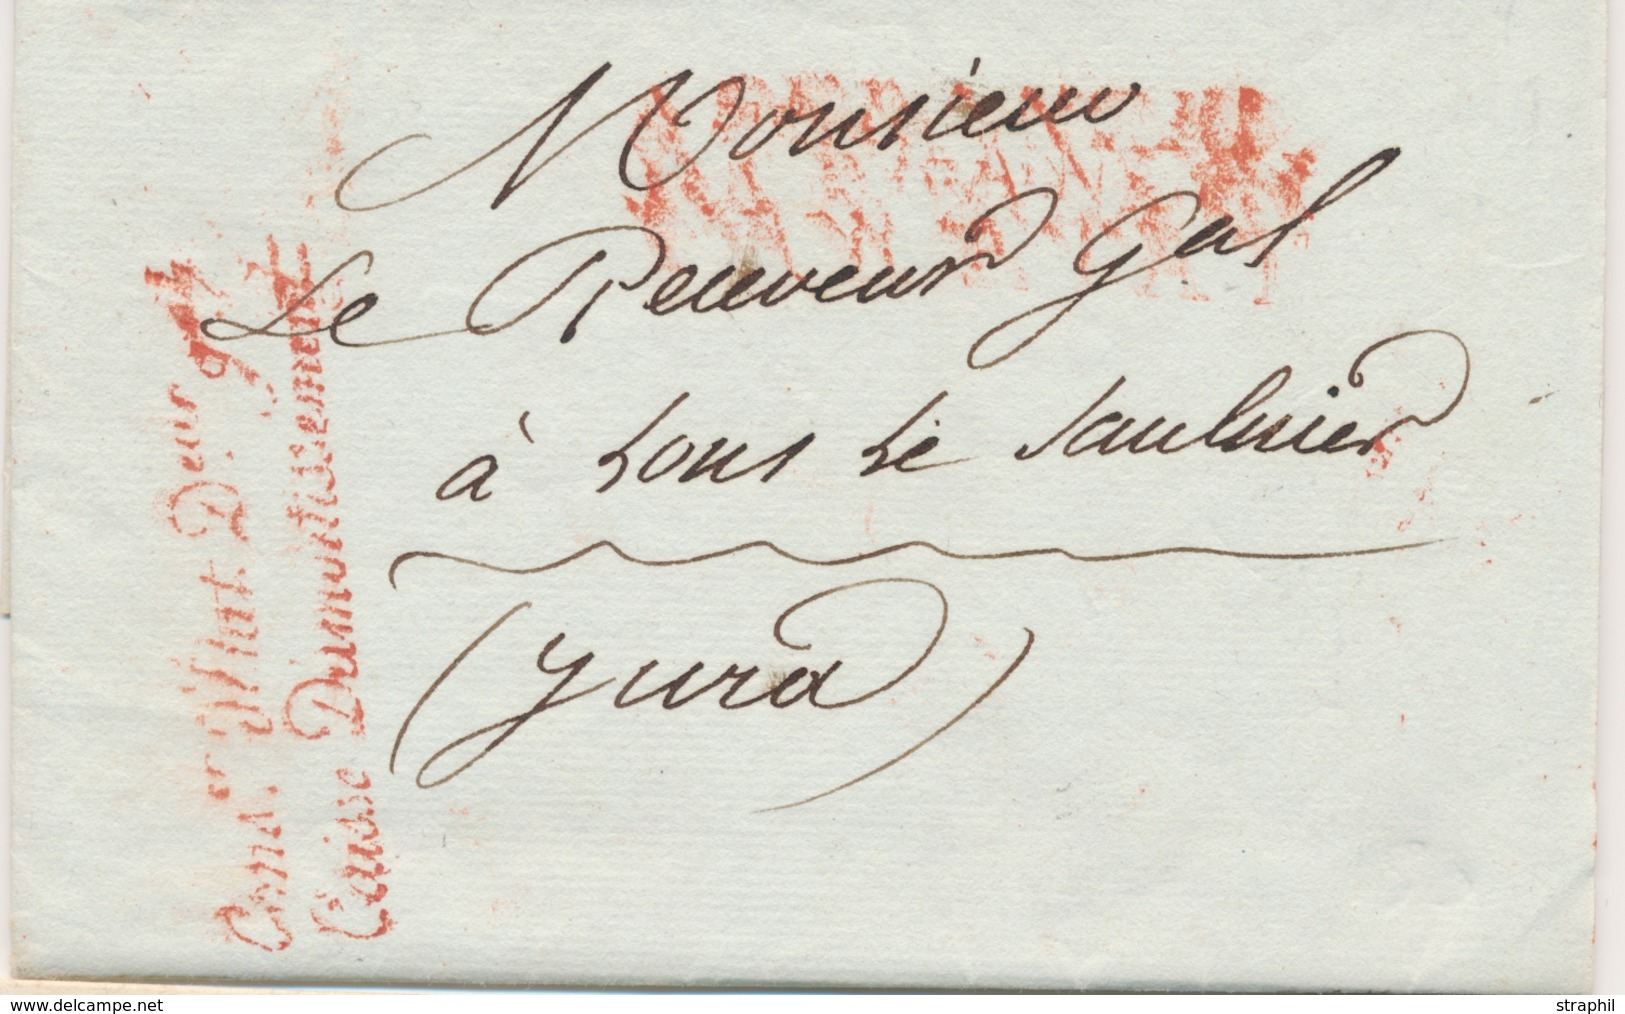 Monsieur
Le Receveur Gal
à Lons Le Saulnier
(Jura)
Cons.er d'Etat Deur gal
Caisse Damortissement
www.delcampe.net
straphil